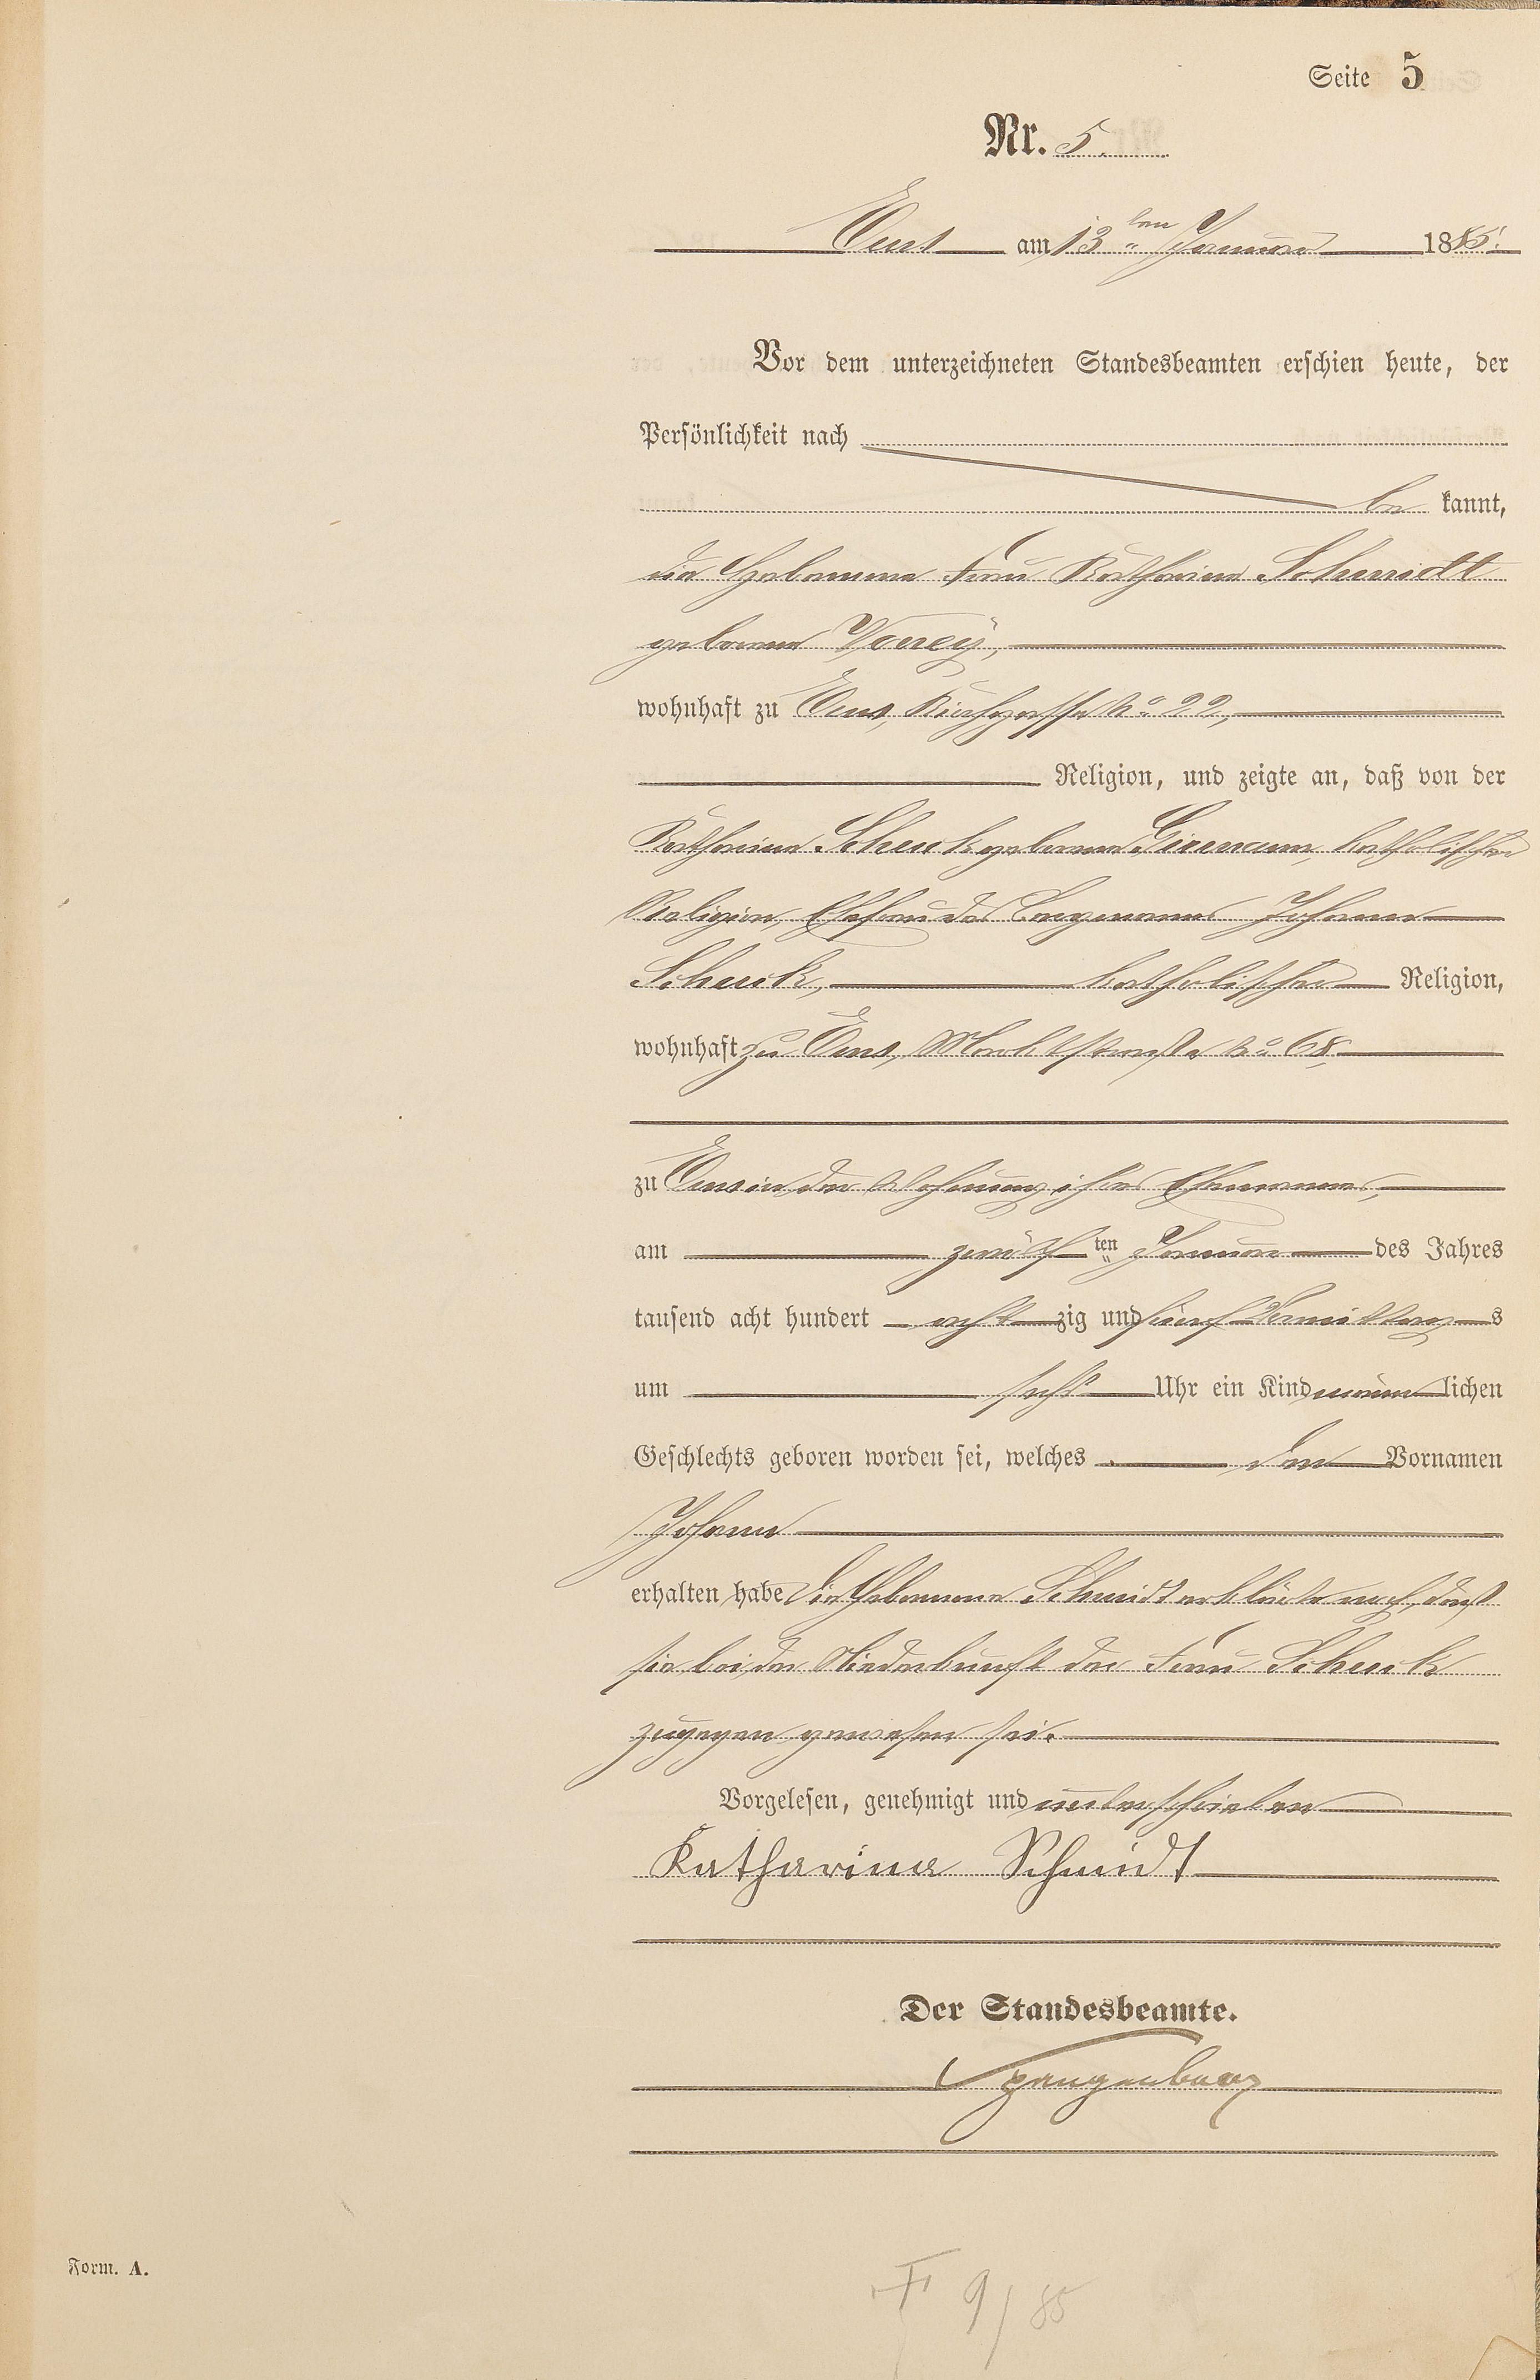 Seite 5
Nr. 5.
Ems am 13ten Januar 1885.
Vor dem unterzeichneten Standesbeamten erschien heute, der
Persönlichkeit nach
be kannt,
die Hebamme Frau Katharina Schmidt
geborene
wohnhaft zu Ems, Kirchgasse No 22,
Religion, und zeigte an, daß von der
Katharina Schenk geborene katholischer
Religion, Ehefrau des Bergmanns Johann
Schenk, katholischer Religion,
wohnhaft zu Ems, Marktstraße No 68,
zu Ems in der Wohnung ihres Ehemannes,
am zwölf ten Januar des Jahres
tausend acht hundert acht zig und fünf Vormittag s
um sechs Uhr ein Kind männ lichen
Geschlechts geboren worden sei, welches den Vornamen
Johann
erhalten habe Die Hebamme Schmidt erklärte noch, daß
sie bei der Niederkunft der Frau Schenk
zugegen gewesen sei.
Vorgelesen, genehmigt und unterschrieben
Katharina Schmidt
Der Standesbeamte.
Spangenberg
Form. A.
9/85